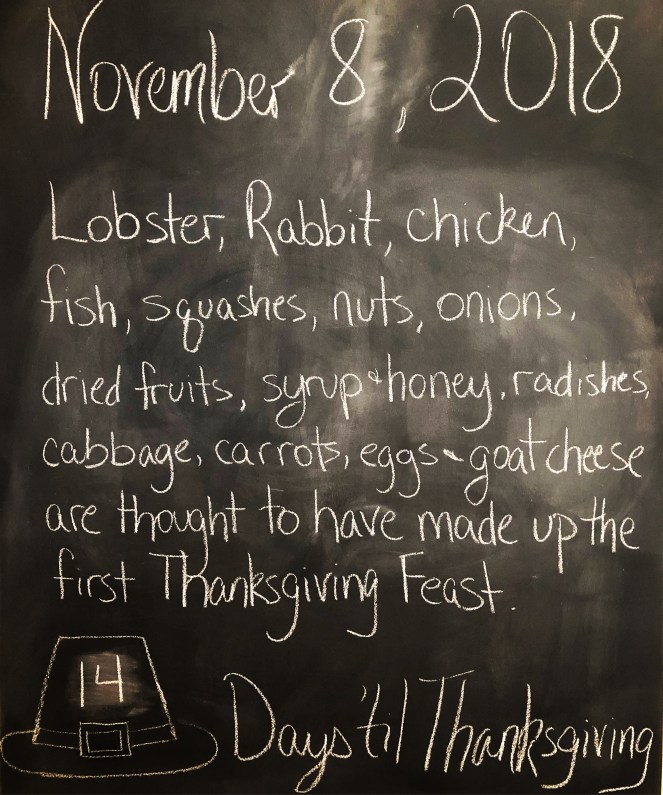 November 8, 2018
Lobster, Rabbit, chicken,
fish, squashes, nuts, onions,
dried fruits, syrup & honey, radishes,
cabbage, carrots, eggs & goat cheese
are thought to have made up the
first Thanksgiving Feast.
14
Days 'til Thanksgiving